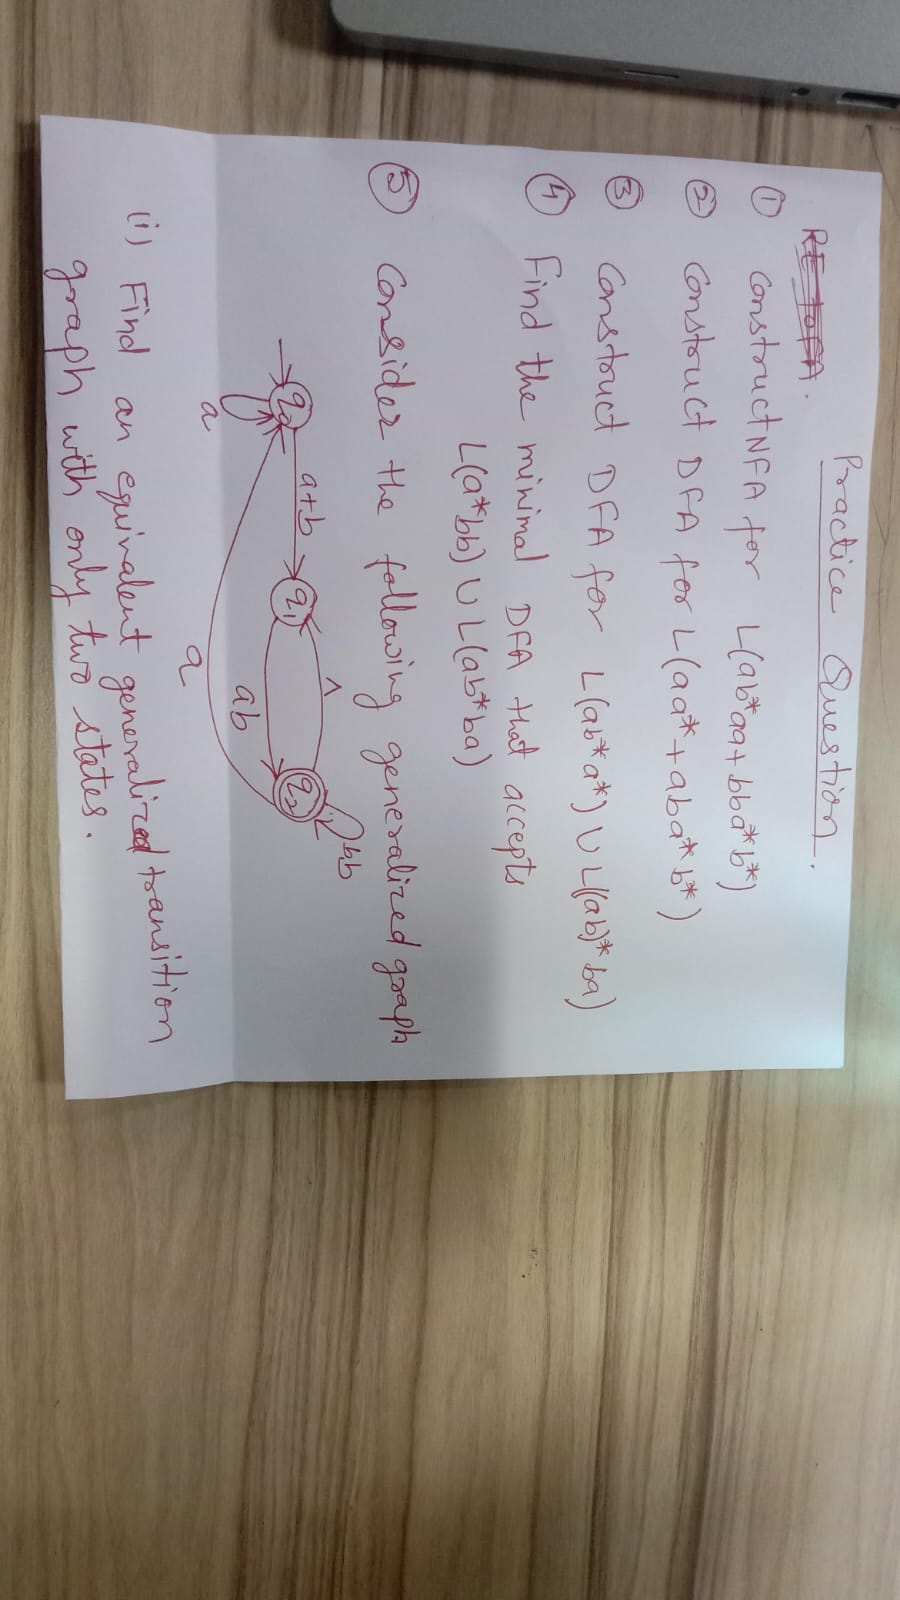 Practice Question.
RE to FA.
① Construct NFA for L(ab*aa+bba*b*)
② Construct DFA for L(aa*+aba*b*)
③ Construct DFA for L(ab*a*) ∪ L((ab)*ba)
④ Find the minimal DFA that accepts
L(a*bb) ∪ L(ab*ba)
⑤ Consider the following generalized graph
bb
λ
q₀ a+b q₁ q₂
ab
a
a
(i) Find an equivalent generalized transition
graph with only two states.